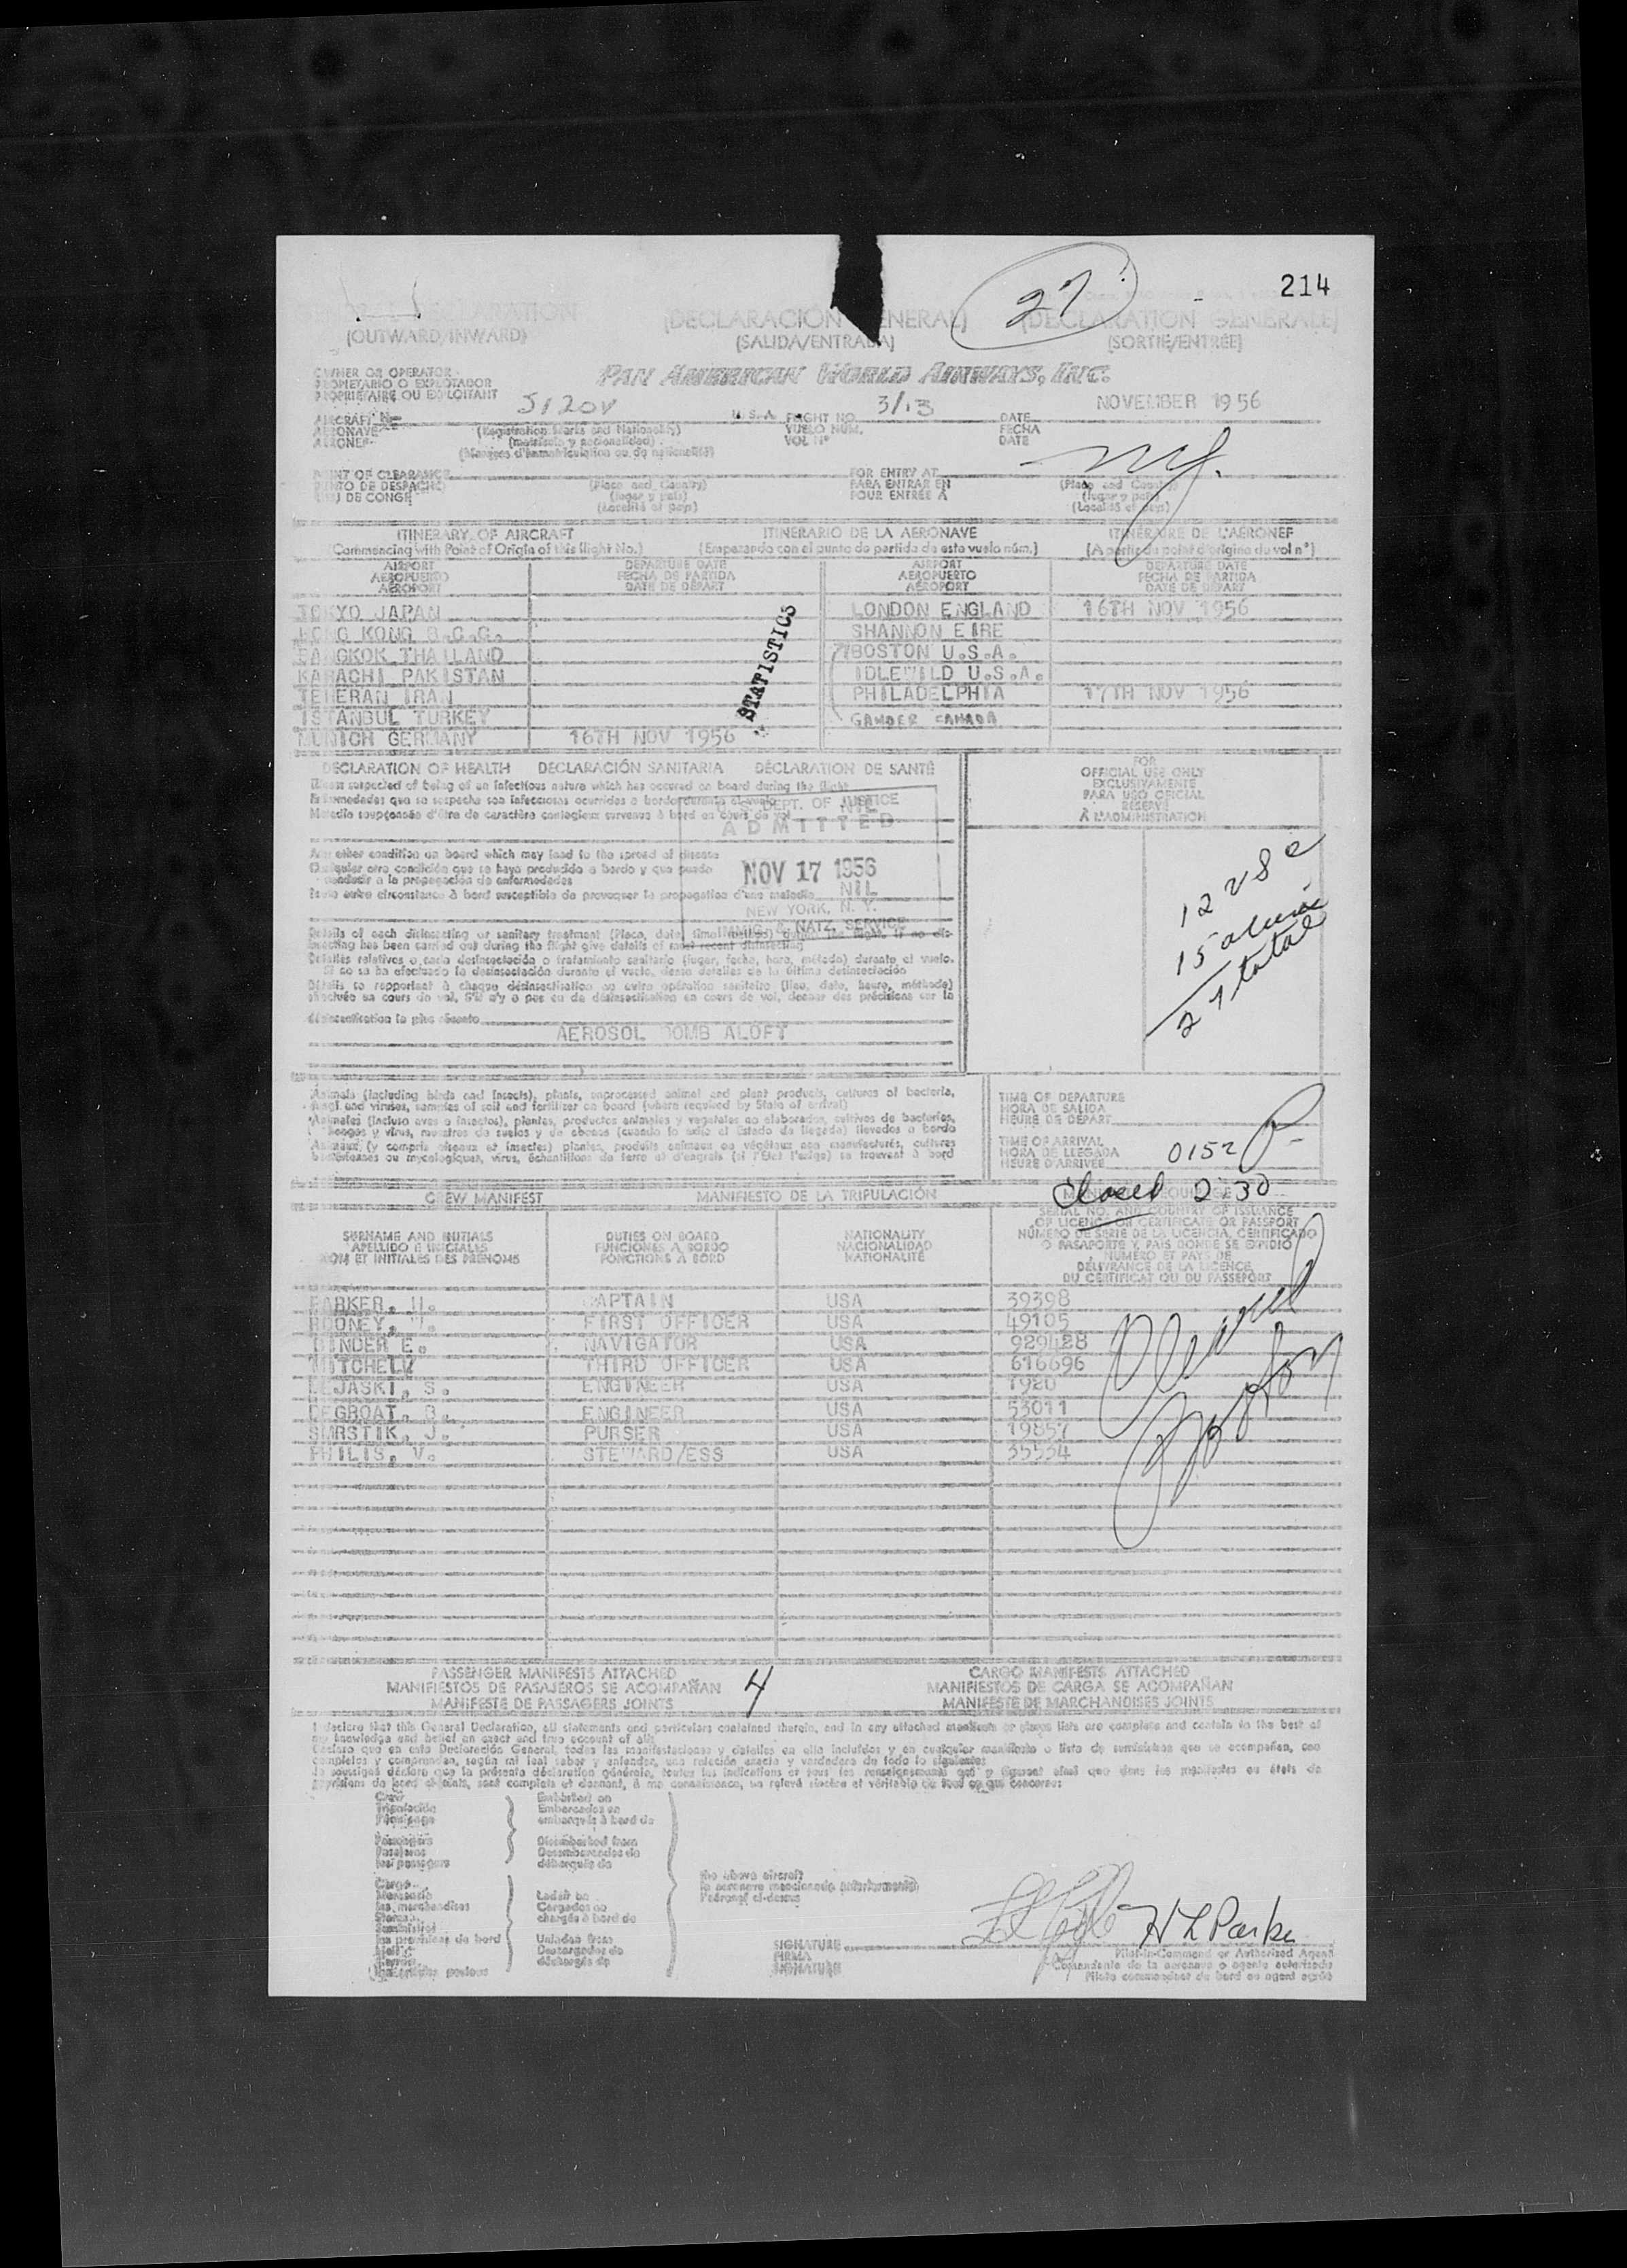 27
214
DECLARATION
(DECLARACIÓN GENERAL)
(DECLARATION GENERALE)
(OUTWARD/INWARD)
(SALIDA/ENTRADA)
(SORTIE/ENTRÉE)
OWNER OR OPERATOR
PROPIETARIO O EXPLOTADOR
PROPRIETAIRE OU EXPLOITANT
PAN AMERICAN WORLD AIRWAYS, INC.
AIRCRAFT N 5120V U.S.A. FLIGHT NO. 3/13 DATE NOVEMBER 1956
AERONAVE (Registration Marks and Nationality) VUELO NUM. FECHA
AERONEF (matrícula y nacionalidad) VOL Nº DATE
(Marques d'immatriculation ou de nationalité)
NY.
POINT OF CLEARANCE FOR ENTRY AT
PUNTO DE DESPACHO (Place and Country) PARA ENTRAR EN (Place and Country)
LIEU DE CONGÉ (lugar y país) POUR ENTRÉE À (lugar y país)
(Localité et pays) (Localité et pays)
ITINERARY OF AIRCRAFT ITINERARIO DE LA AERONAVE ITINÉRAIRE DE L'AÉRONEF
(Commencing with Point of Origin of this flight No.) (Empezando con el punto de partida de este vuelo núm.) (A partir du point d'origine du vol nº)
AIRPORT DEPARTURE DATE AIRPORT DEPARTURE DATE
AEROPUERTO FECHA DE PARTIDA AEROPUERTO FECHA DE PARTIDA
AÉROPORT DATE DE DÉPART AÉROPORT DATE DE DÉPART
TOKYO JAPAN LONDON ENGLAND 16TH NOV 1956
HONG KONG B.C.C. SHANNON EIRE
BANGKOK THAILAND BOSTON U.S.A.
KARACHI PAKISTAN IDLEWILD U.S.A.
TEHERAN IRAN PHILADELPHIA 17TH NOV 1956
ISTANBUL TURKEY GANDER CANADA
MUNICH GERMANY 16TH NOV 1956
STATISTICS
DECLARATION OF HEALTH DECLARACIÓN SANITARIA DÉCLARATION DE SANTÉ
Illness suspected of being of an infectious nature which has occured on board during the flight
Enfermedades que se sospecha son infecciosas ocurridas a bordo durante el vuelo
Maladie soupçonnée d'être de caractère contagieux survenue à bord en cours de vol NIL
U.S. DEPT. OF JUSTICE
ADMITTED
NOV 17 1956
NEW YORK, N. Y.
IMMIG. & NATZ. SERVICE
Any other condition on board which may lead to the spread of disease
Cualquier otra condición que se haya producido a bordo y que puede
conducir a la propagación de enfermedades
Toute autre circonstance à bord susceptible de provoquer la propagation d'une maladie NIL
Details of each disinsecting or sanitary treatment (Place, date, time, method) during the flight. If no dis-
insecting has been carried out during the flight give details of most recent disinsecting
Detalles relativos a cada desinsectación o tratamiento sanitario (lugar, fecha, hora, método) durante el vuelo.
Si no se ha efectuado la desinsectación durante el vuelo, dense detalles de la última desinsectación
Détails se rapportant à chaque désinsectisation ou autre opération sanitaire (lieu, date, heure, méthode)
effectuée au cours du vol. S'il n'y a pas eu de désinsectisation en cours de vol, donner des précisions sur la
désinsectisation la plus récente
AEROSOL BOMB ALOFT
FOR
OFFICIAL USE ONLY
EXCLUSIVAMENTE
PARA USO OFICIAL
RÉSERVÉ
À L'ADMINISTRATION
12 US c
15 aliens
27 total
Animals (including birds and insects), plants, unprocessed animal and plant products, cultures of bacteria,
fungi and viruses, samples of soil and fertilizer on board (where required by State of arrival)
Animales (incluso aves o insectos), plantas, productos animales y vegetales no elaborados, cultivos de bacterias,
hongos y virus, muestras de suelos y de abonos (cuando lo exija el Estado de llegada) llevados a bordo
Animaux (y compris oiseaux et insectes) plantes, produits animaux ou végétaux non manufacturés, cultures
bactériennes ou mycologiques, virus, échantillons de terre et d'engrais (si l'État l'exige) se trouvant à bord
TIME OF DEPARTURE
HORA DE SALIDA
HEURE DE DÉPART
TIME OF ARRIVAL
HORA DE LLEGADA 0152 P
HEURE D'ARRIVÉE
Closed 2:30
CREW MANIFEST MANIFIESTO DE LA TRIPULACIÓN
SURNAME AND INITIALS DUTIES ON BOARD NATIONALITY SERIAL NO. AND COUNTRY OF ISSUANCE
APELLIDO E INICIALES FUNCIONES A BORDO NACIONALIDAD OF LICENCE OR CERTIFICATE OR PASSPORT
NOM ET INITIALES DES PRÉNOMS FONCTIONS À BORD NATIONALITÉ NÚMERO DE SERIE DE LA LICENCIA, CERTIFICADO
O PASAPORTE Y PAIS DONDE SE EXPIDIÓ
NUMERO ET PAYS DE
DÉLIVRANCE DE LA LICENCE,
DU CERTIFICAT OU DU PASSEPORT
PARKER, H. CAPTAIN USA 39398
RODNEY, FIRST OFFICER USA 49105
E. NAVIGATOR USA 929428
MITCHELL THIRD OFFICER USA 616696
LEJASKI, S. ENGINEER USA 1920
DEGROAT, B. ENGINEER USA 53011
SMRSTIK, J. PURSER USA 19857
PHILIS, V. STEWARD/ESS USA 35534
PASSENGER MANIFESTS ATTACHED 4 CARGO MANIFESTS ATTACHED
MANIFIESTOS DE PASAJEROS SE ACOMPAÑAN MANIFIESTOS DE CARGA SE ACOMPAÑAN
MANIFESTE DE PASSAGERS JOINTS MANIFESTE DE MARCHANDISES JOINTS
I declare that this General Declaration, all statements and particulars contained therein, and in any attached manifests or stores lists are complete and contain to the best of
my knowledge and belief an exact and true account of all:
Declaro que en esta Declaración General, todas las manifestaciones y detalles en ella incluídos y en cualquier manifiesto o lista de suministros que se acompañan, son
completas y comprenden, según mi leal saber y entender, una relación exacta y verdadera de todo lo siguiente:
Je soussigné déclare que la présente déclaration générale, toutes les indications et tous les renseignements qui y figurent ainsi que dans les manifestes ou états de
provisions de bord ci-joints, sont complets et donnent, à ma connaissance, un relevé sincère et véritable de tout ce qui concerne:
Crew Embarked on
Tripulación Embarcados en
l'équipage embarqués à bord de
Passengers Disembarked from
Pasajeros Desembarcados de
les passagers débarqués de
Cargo
Mercancía Laden on
les marchandises Cargados en
Stores chargés à bord de
Suministros
les provisions de bord Unladen from
Descargados de
déchargés de
the above aircraft
la aeronave mencionada anteriormente
l'aéronef ci-dessus
H L Parker
SIGNATURE
FIRMA
SIGNATURE
Pilot-in-Command or Authorized Agent
Comandante de la aeronave o agente autorizado
Pilote commandant de bord ou agent agréé